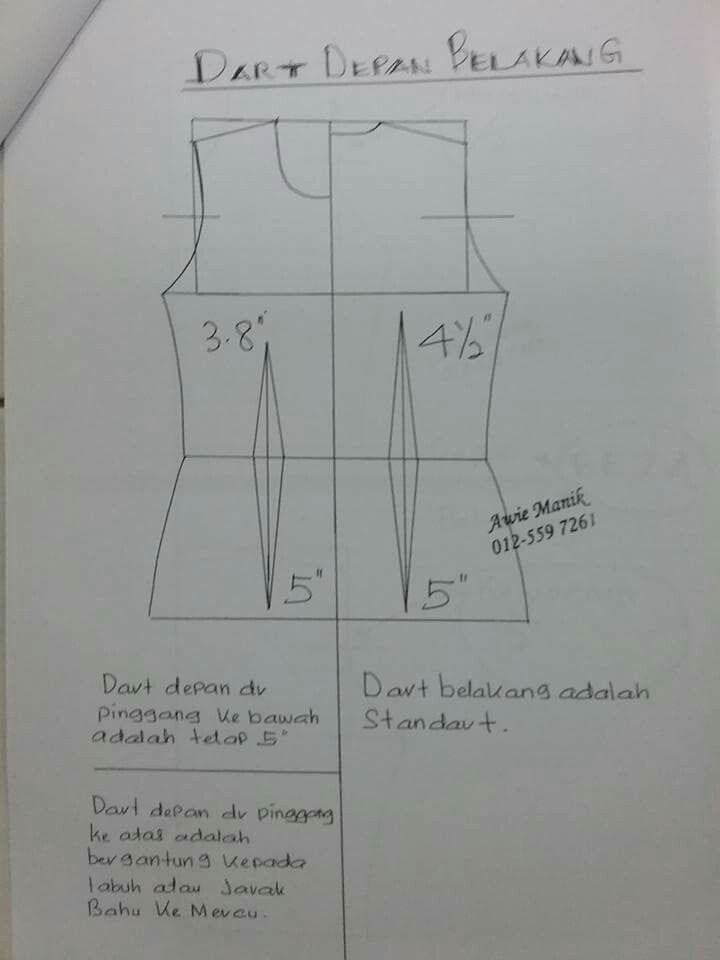 DART DEPAN BELAKANG
3.8"
4½"
Awie Manik
012-559 7261
5"
5"
Dart depan dr
pinggang ke bawah
adalah tetap 5"
Dart belakang adalah
Standart.
Dart depan dr pinggang
ke atas adalah
bergantung kepada
labuh atau Jarak
Bahu Ke Mercu.